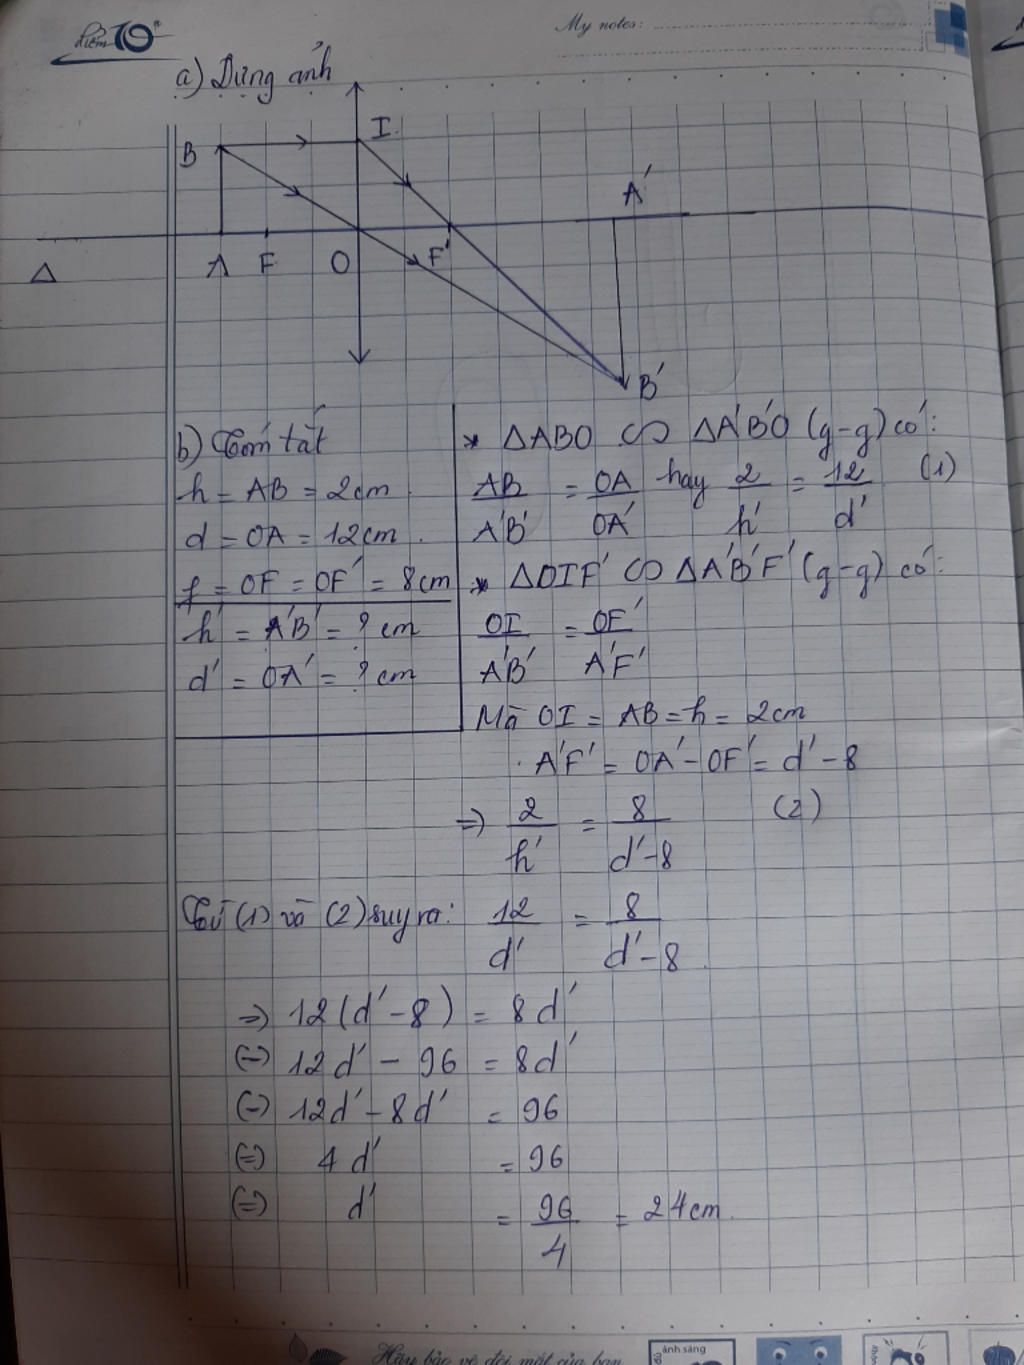 Điểm 10
My notes:
a) Dựng ảnh
B I A'
Δ A F O F'
B'
b) Tóm tắt
h = AB = 2cm
d = OA = 12cm.
f = OF = OF' = 8cm
h' = A'B' = ? cm
d' = OA' = ? cm
* ΔABO ∽ ΔA'B'O (g-g) có:
AB/A'B' = OA/OA' hay 2/h' = 12/d' (1)
* ΔOIF' ∽ ΔA'B'F' (g-g) có:
OI/A'B' = OF'/A'F'
Mà OI = AB = h = 2cm
A'F' = OA' - OF' = d' - 8
=> 2/h' = 8/d'-8 (2)
Từ (1) và (2) suy ra: 12/d' = 8/d'-8
=> 12(d' - 8) = 8d'
(=) 12d' - 96 = 8d'
(=) 12d' - 8d' = 96
(=) 4d' = 96
(=) d' = 96/4 = 24cm.
Hãy bảo vệ đôi mắt của bạn
ánh sáng